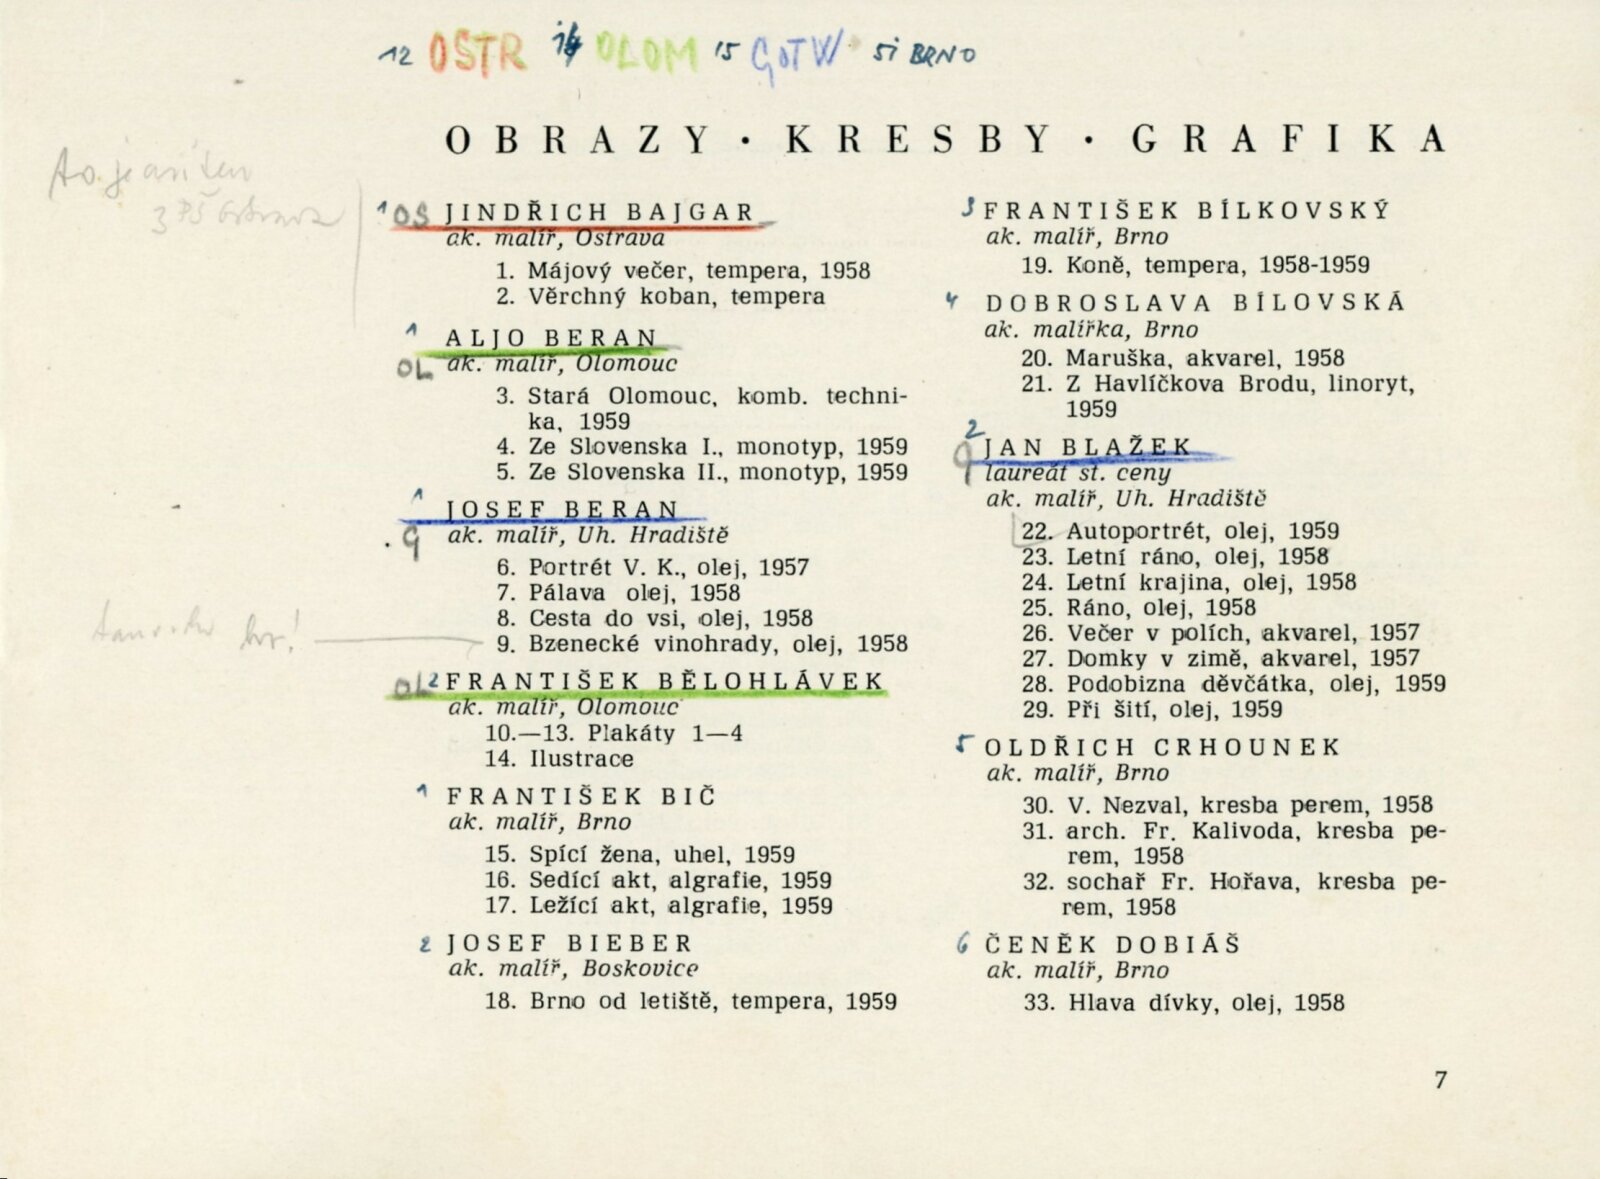 12 OSTR 14 OLOM 15 GOTW 51 BRNO
OBRAZY · KRESBY · GRAFIKA
1 OS JINDŘICH BAJGAR
ak. malíř, Ostrava
1. Májový večer, tempera, 1958
2. Věrchný koban, tempera
1
ALJO BERAN
OL ak. malíř, Olomouc
3. Stará Olomouc, komb. techni-
ka, 1959
4. Ze Slovenska I., monotyp, 1959
5. Ze Slovenska II., monotyp, 1959
1
JOSEF BERAN
G ak. malíř, Uh. Hradiště
6. Portrét V. K., olej, 1957
7. Pálava olej, 1958
8. Cesta do vsi, olej, 1958
9. Bzenecké vinohrady, olej, 1958
OL 2 FRANTIŠEK BĚLOHLÁVEK
ak. malíř, Olomouc
10.—13. Plakáty 1—4
14. Ilustrace
1 FRANTIŠEK BIČ
ak. malíř, Brno
15. Spící žena, uhel, 1959
16. Sedící akt, algrafie, 1959
17. Ležící akt, algrafie, 1959
2 JOSEF BIEBER
ak. malíř, Boskovice
18. Brno od letiště, tempera, 1959
3 FRANTIŠEK BÍLKOVSKÝ
ak. malíř, Brno
19. Koně, tempera, 1958-1959
4 DOBROSLAVA BÍLOVSKÁ
ak. malířka, Brno
20. Maruška, akvarel, 1958
21. Z Havlíčkova Brodu, linoryt,
1959
2
G JAN BLAŽEK
laureát st. ceny
ak. malíř, Uh. Hradiště
22. Autoportrét, olej, 1959
23. Letní ráno, olej, 1958
24. Letní krajina, olej, 1958
25. Ráno, olej, 1958
26. Večer v polích, akvarel, 1957
27. Domky v zimě, akvarel, 1957
28. Podobizna děvčátka, olej, 1959
29. Při šití, olej, 1959
5 OLDŘICH CRHOUNEK
ak. malíř, Brno
30. V. Nezval, kresba perem, 1958
31. arch. Fr. Kalivoda, kresba pe-
rem, 1958
32. sochař Fr. Hořava, kresba pe-
rem, 1958
6 ČENĚK DOBIÁŠ
ak. malíř, Brno
33. Hlava dívky, olej, 1958
7